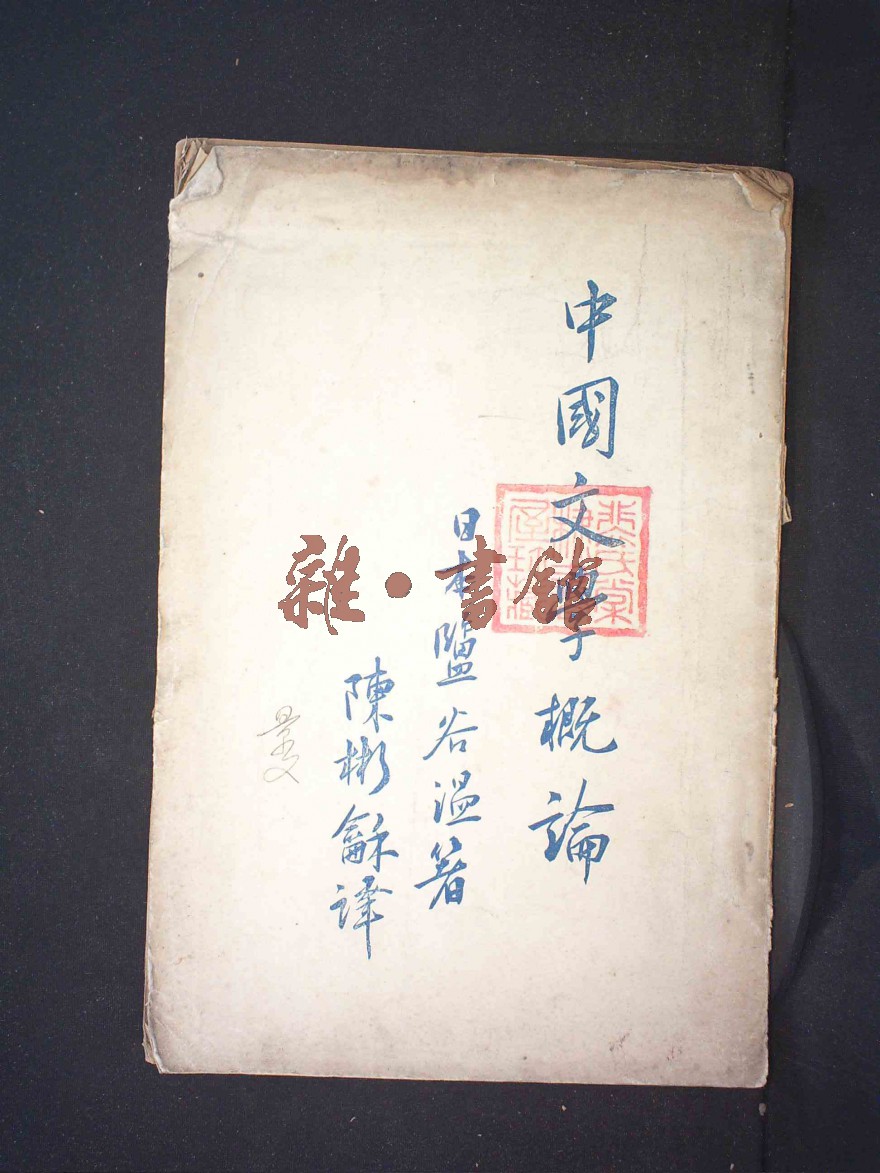 中國文學概論
日本鹽谷温著
陳彬龢譯
雜·書館